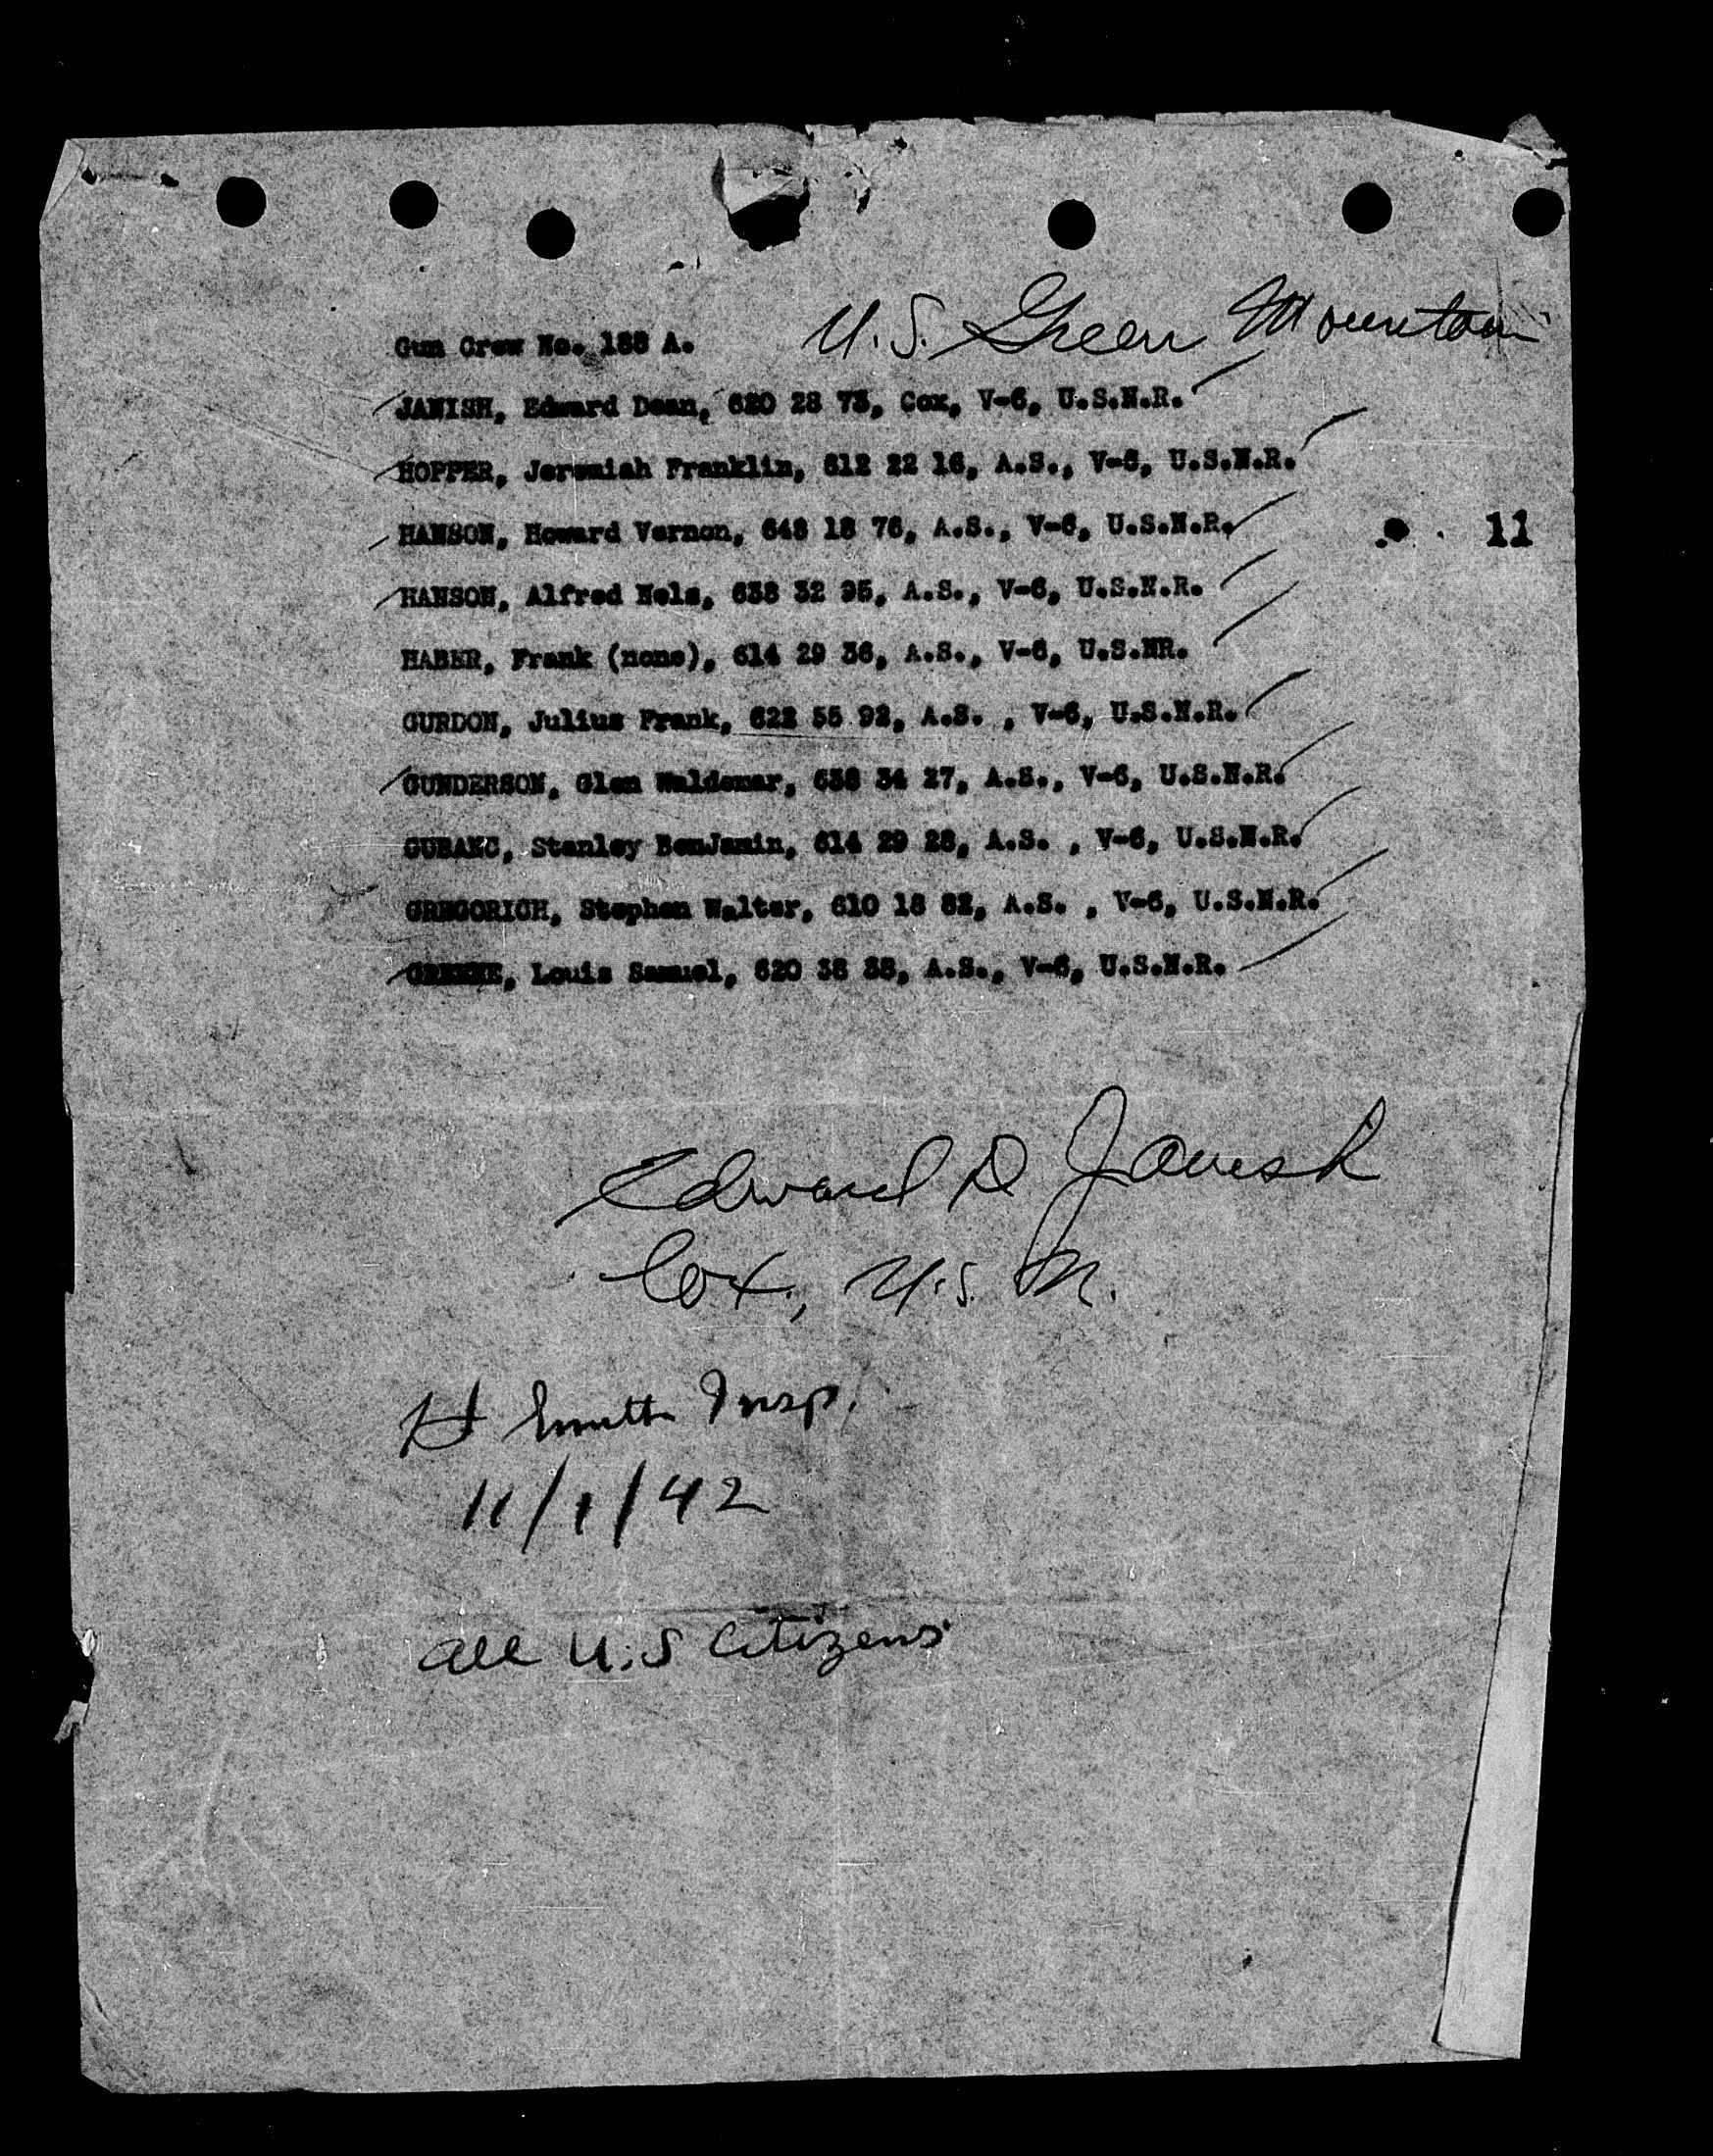 U.S. Green Mountain
Gun Crew No. 188 A.
JANISH, Edward Dean, 620 28 73, Cox, V-6, U.S.N.R.
HOPPER, Jeremiah Franklin, 612 22 16, A.S., V-6, U.S.N.R.
HANSON, Howard Vernon, 648 18 76, A.S., V-6, U.S.N.R.
11
HANSON, Alfred Nels, 638 32 95, A.S., V-6, U.S.N.R.
HABER, Frank (none), 614 29 36, A.S., V-6, U.S.NR.
GURDON, Julius Frank, 622 55 92, A.S. , V-6, U.S.N.R.
GUNDERSON, Glen Waldemar, 638 34 27, A.S., V-6, U.S.N.R.
GUBANC, Stanley BenJamin, 614 29 28, A.S. , V-6, U.S.N.R.
GREGORICH, Stephen Walter, 610 18 82, A.S. , V-6, U.S.N.R.
GREENE, Louis Samuel, 620 38 38, A.S., V-6, U.S.N.R.
Edward D Janish
Cox, U.S. N.
H Smith Insp.
11/1/42
all U.S Citizens